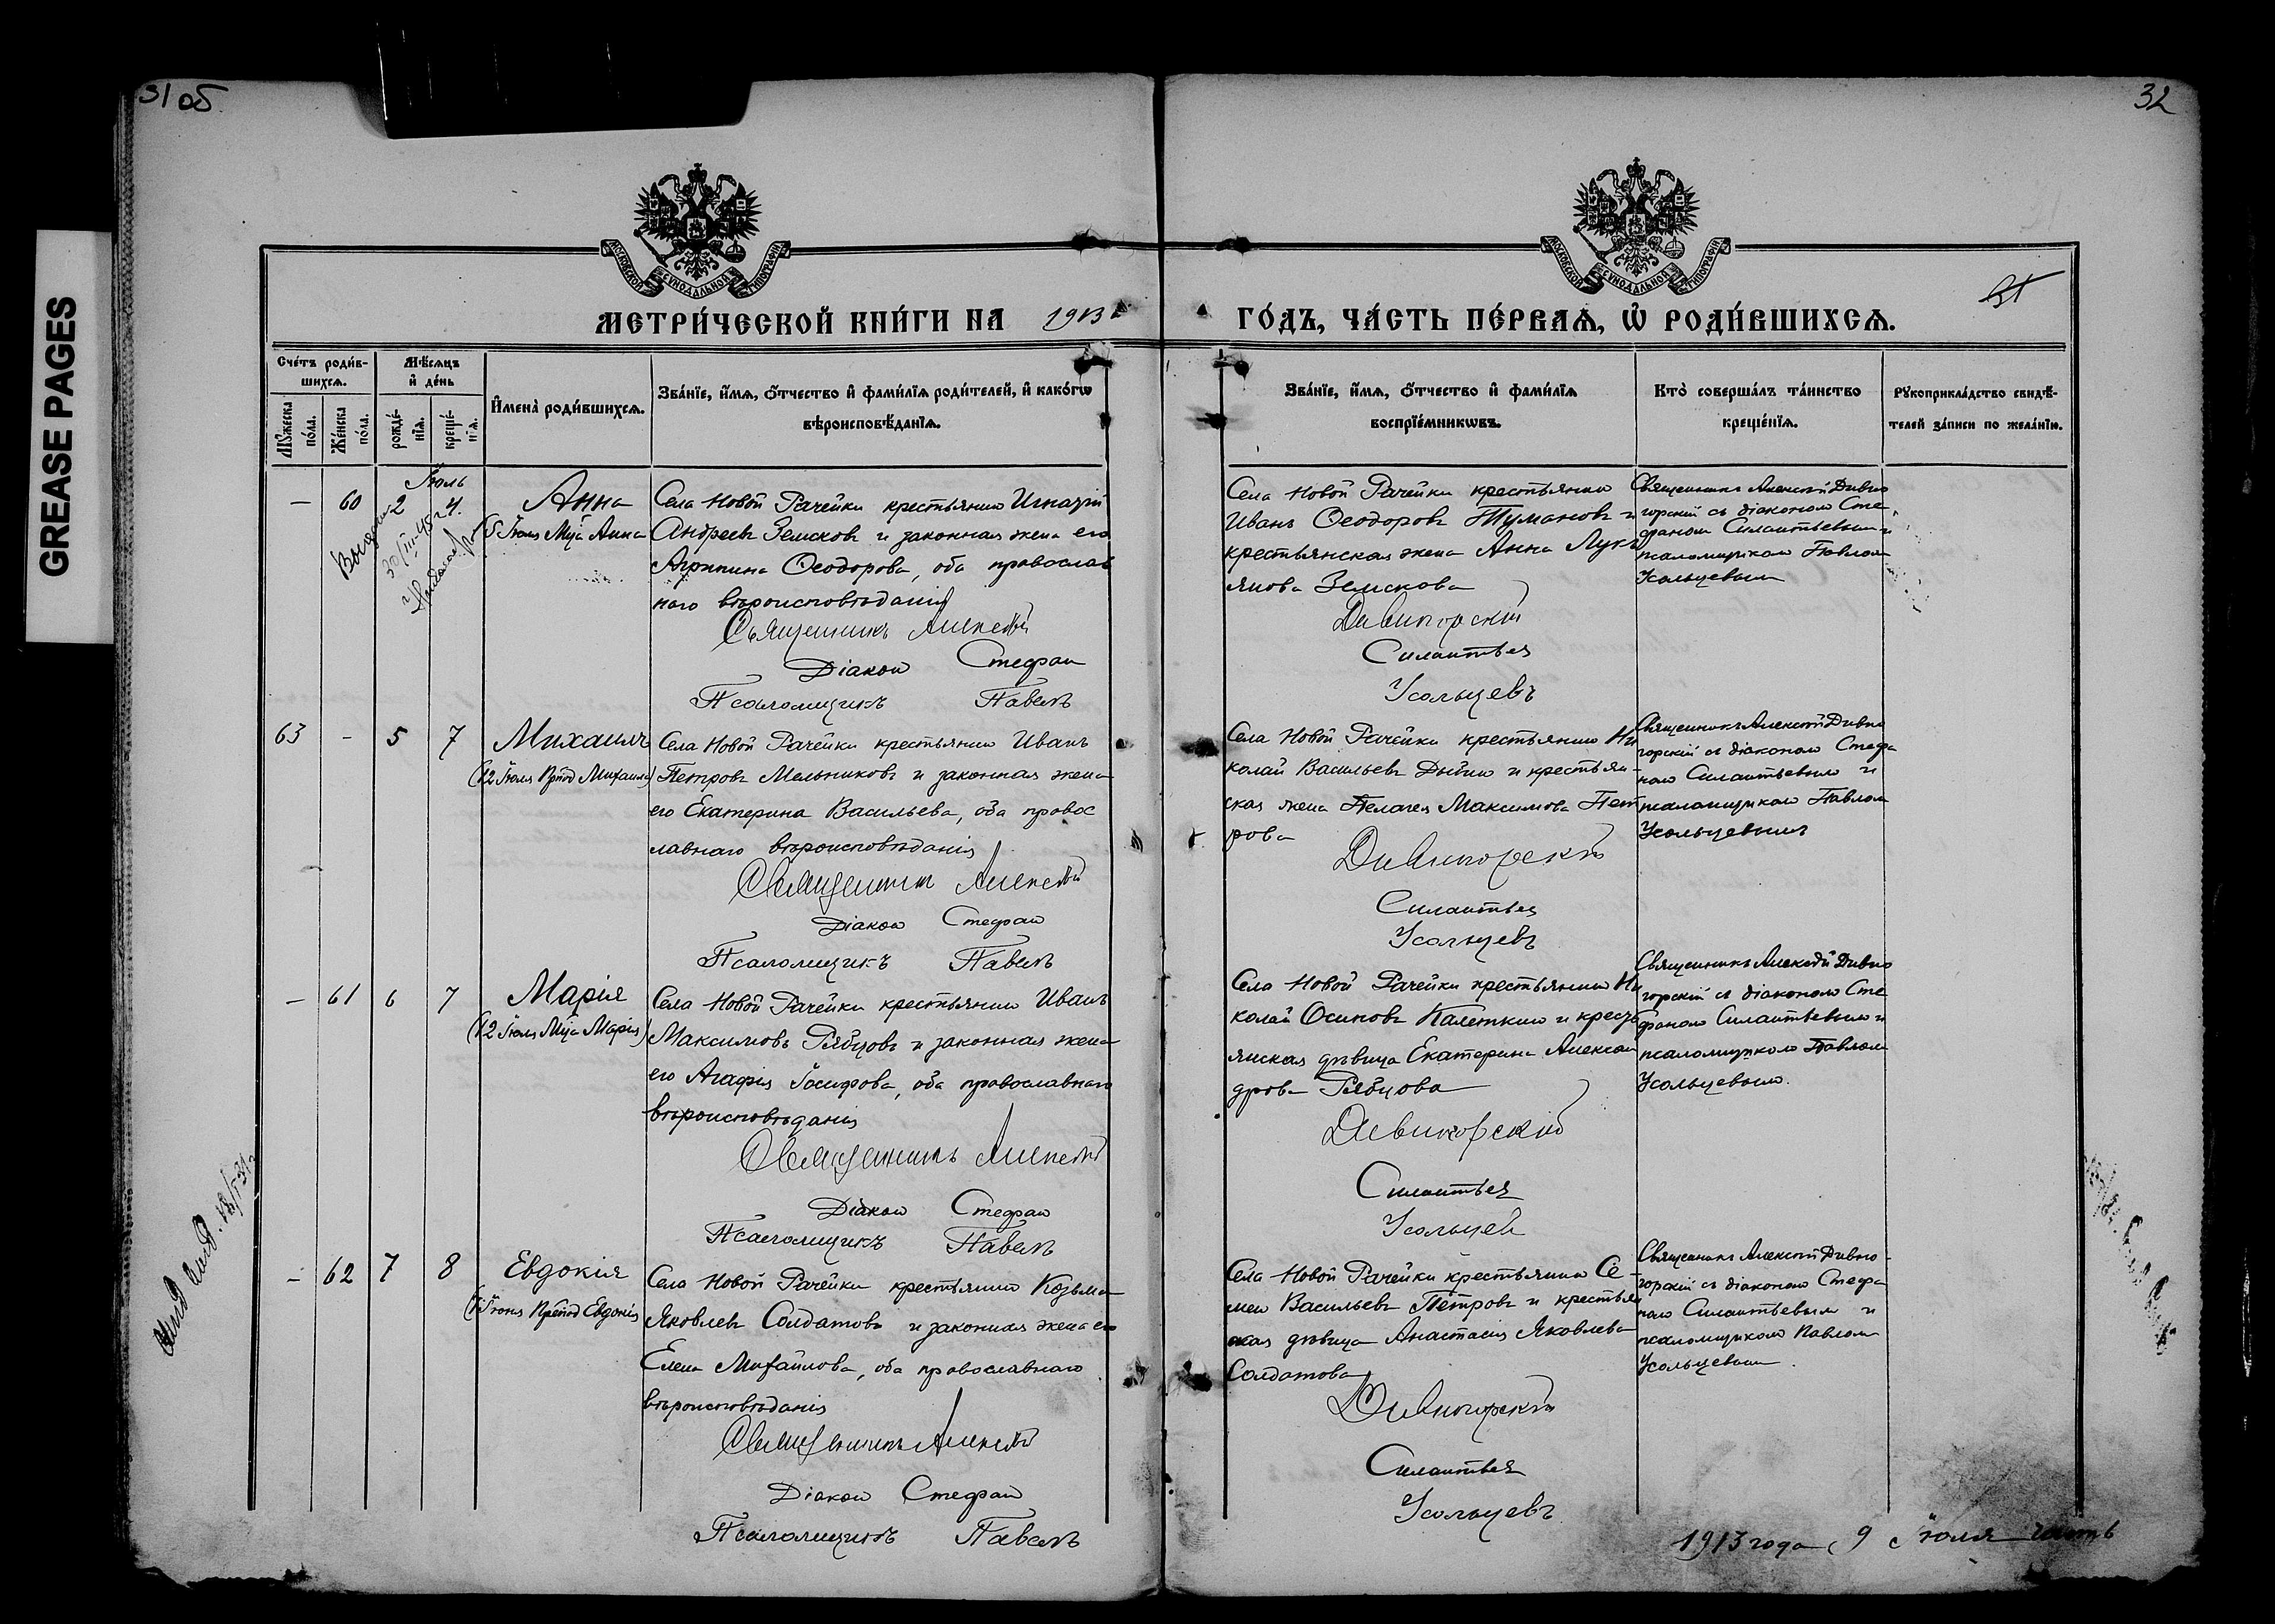 31 об
32
GREASE PAGES
МОСКОВСКОЙ СѴНОДАЛЬНОЙ ТИПОГРАФІИ
МОСКОВСКОЙ СѴНОДАЛЬНОЙ ТИПОГРАФІИ
31
МЕТРИ́ЧЕСКОЙ КНИ́ГИ НА 1913 г
ГО́ДЪ, ЧА́СТЬ ПЕ́РВАѦ, Ѡ҆ РОДИ́ВШИХСѦ.
Сче́тъ роди́в-
шихсѧ.
Мѣ́сѧцъ
и҆ де́нь
Мꙋ́жеска
по́ла.
Же́нска
по́ла.
рожде́-
нїѧ.
креще́-
нїѧ.
И҆мена̀ роди́вшихсѧ.
Зва́нїе, и҆́мѧ, ѻ҆́тчество и҆ фами́лїѧ роди́телей, и҆ како́гѡ
вѣроисповѣ́данїѧ.
Зва́нїе, и҆́мѧ, ѻ҆́тчество и҆ фами́лїѧ
воспрїе́мникѡвъ.
Кто̀ соверша́лъ та́инство
креще́нїѧ.
Рꙋкоприкла́дство свидѣ́-
телей за́писи по жела́нїю.
Іюль
— 60 2 4.
Анна
(5 Іюля Мц̃а Анна
Села Новой Рачейки крестьянин Игнатій
Андреевъ Земсковъ и законная жена его
Агрипина Ѳеодорова, оба православ
наго вѣроисповѣданія
Священникъ Алексѣй
Діакон Стефан
Псаломщикъ Павелъ
Села Новой Рачейки крестьянин
Иванъ Ѳеодоровъ Тумановъ и
крестьянская жена Анна Лукь
янова Земскова
Дивногорскій
Силантьев
Усольцевъ
Священникъ Алексѣй Дивно
горскій съ діаконом Сте
фаном Силантьевым и
псаломщиком Павлом
Усольцевым
63 - 5 7
Михаилъ
(12 Іюля Прп̃од Михаила)
Села Новой Рачейки крестьянин Иванъ
Петровъ Мельниковъ и законная жена
его Екатерина Васильева, оба правос
лавнаго вѣроисповѣданія
Священникъ Алексѣй
Діакон Стефан
Псаломщикъ Павелъ
Села Новой Рачейки крестьянин Ни
колай Васильевъ Дыбин и крестьян-
ская жена Пелагея Максимова Пет
рова
Дивногорскій
Силантьев
Усольцевъ
Священникъ Алексѣй Дивно
горскій съ діаконом Стефа
ном Силантьевым и
псаломщиком Павлом
Усольцевымъ
— 61 6 7
Марія
(12 Іюля Мц̃а Марія)
Села Новой Рачейки крестьянин Иванъ
Максимовъ Рябцовъ и законная жена
его Агафія Іосифова, оба православнаго
вѣроисповѣданія
Священникъ Алексѣй
Діакон Стефан
Псаломщикъ Павелъ
Села Новой Рачейки крестьянин Ни
колай Осиповъ Палеткин и кресть
янская дѣвица Екатерина Алексан
дрова Рябцова
Дивногорскій
Силантьев
Усольцев
Священникъ Алексѣй Дивно
горскій съ діаконом Сте
фаном Силантьевым и
псаломщиком Павлом
Усольцевым.
- 62 7 8
Евдокия
Прп̃од Евдокія
Села Новой Рачейки крестьянин Козьма
Яковлевъ Солдатовъ и законная жена его
Елена Михайлова, оба православнаго
вѣроисповѣданія
Священникъ Алексѣй
Діакон Стефан
Псаломщикъ Павелъ
Села Новой Рачейки крестьянин Се-
мен Васильевъ Петровъ и крестьян
ская дѣвица Анастасія Яковлева
Солдатова
Дивногорскій
Силантьев
Усольцевъ
Священникъ Алексѣй Дивно-
горскій съ діаконом Стефа
ном Силантьевым и
псаломщиком Павлом
Усольцевым.
1913 года 9 Іюля